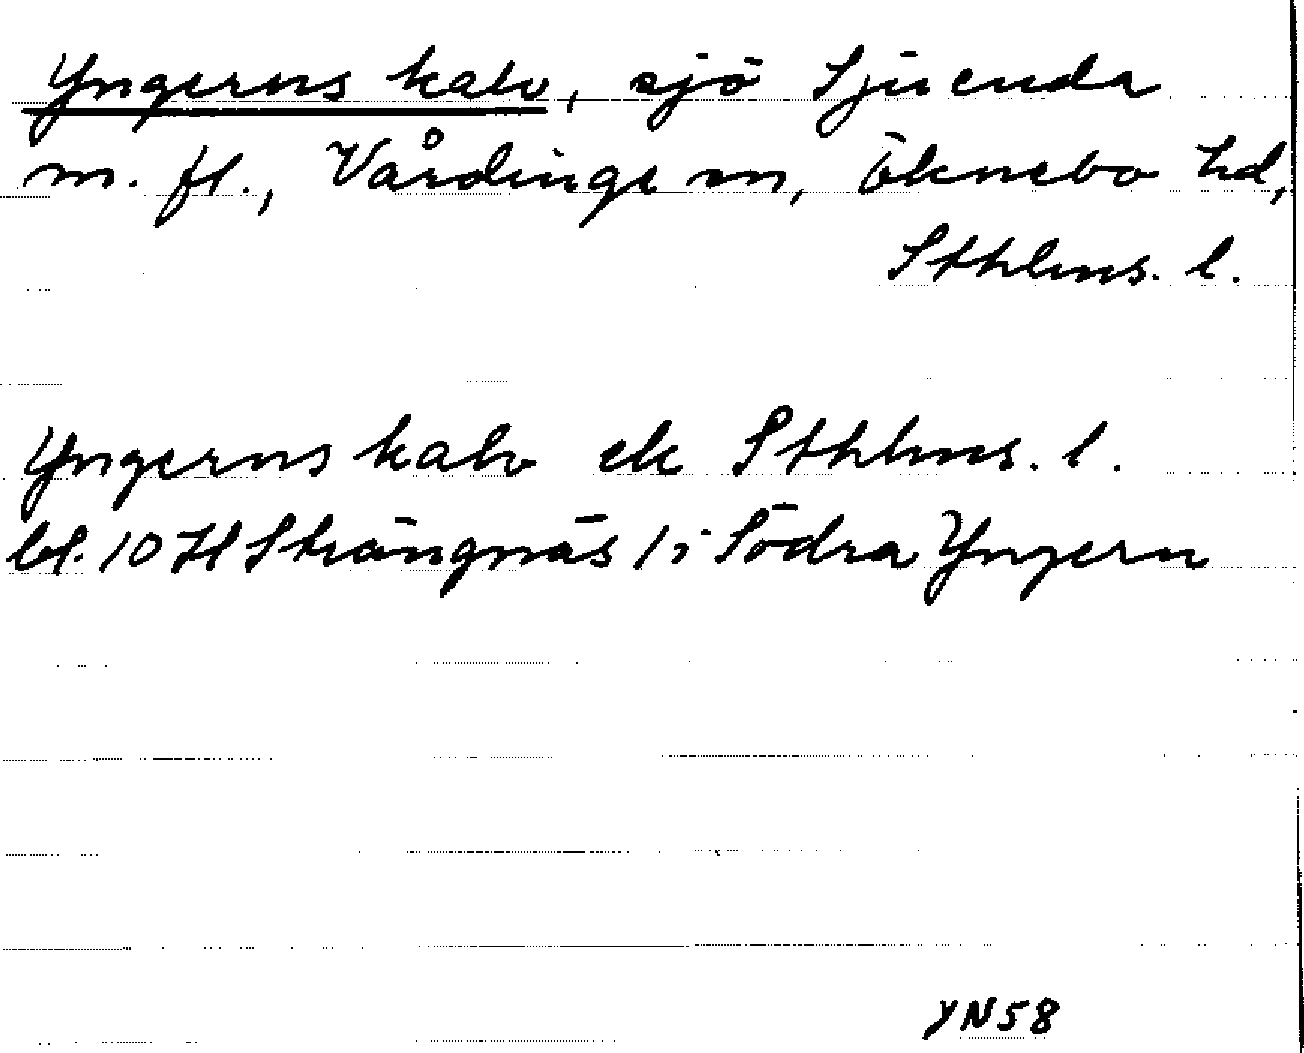 Yngerns kalv, sjö Sjuenda
m. fl., Vårdinge sn, Öknebo hd,
Sthlms. l.
Yngerns kalv ek Sthlms. l.
bl. 10 H Strängnäs 1; Södra Yngern
YN58